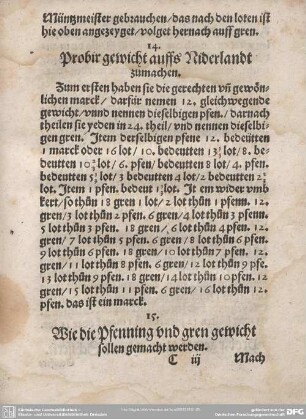 Müntzmeister gebrauchen/das nach den loten ist
hie oben angezeyget/volget hernach auff gren.
14.
Probir gewicht auffs Niderlandt
zumachen.
Zum ersten haben sie die gerechten vñ gewön-
lichen marck/darfür nemen 12. gleichwegende
gewicht/vnnd nennen dieselbigen pfen./darnach
theilen sie yeden in 24. theil/vnd nennen dieselbi-
gen gren. Item derselbigen pfene 12. bedeütten
1 marck oder 16 lot/10. bedeütten 13⅓ lot/8. be-
deutten 10⅔ lot/6. pfen/bedeutten 8 lot/4. pfen.
bedeutten 5⅓ lot/3 bedeutten 4 lot/2 bedeutten 2⅔
lot. Item 1 pfen. bedeut 1⅓ lot. It em wider vmb
kert/so thün 18 gren 1 lot/2 lot thün 1 pfenn. 12.
gren/3 lot thün 2 pfen. 6 gren/4 lot thün 3 pfenn.
5 lot thün 3 pfen. 18 gren/6 lot thün 4 pfen. 12.
gren/7 lot thün 5 pfen. 6 gren/8 lot thün 6 pfen.
9 lot thün 6 pfen. 18 gren/10 lot thün 7 pfen. 12.
gren/11 lot thün 8 pfen. 6 gren/12 lot thün 9 pfe.
13 lot thün 9 pfen. 18 gren/14 lot thün 10 pfen. 12
gren/15 lot thün 11 pfen. 6 gren/16 lot thün 12.
pfen. das ist ein marck.
15.
Wie die Pfenning vnd gren gewicht
sollen gemacht werden.
C iij Mach